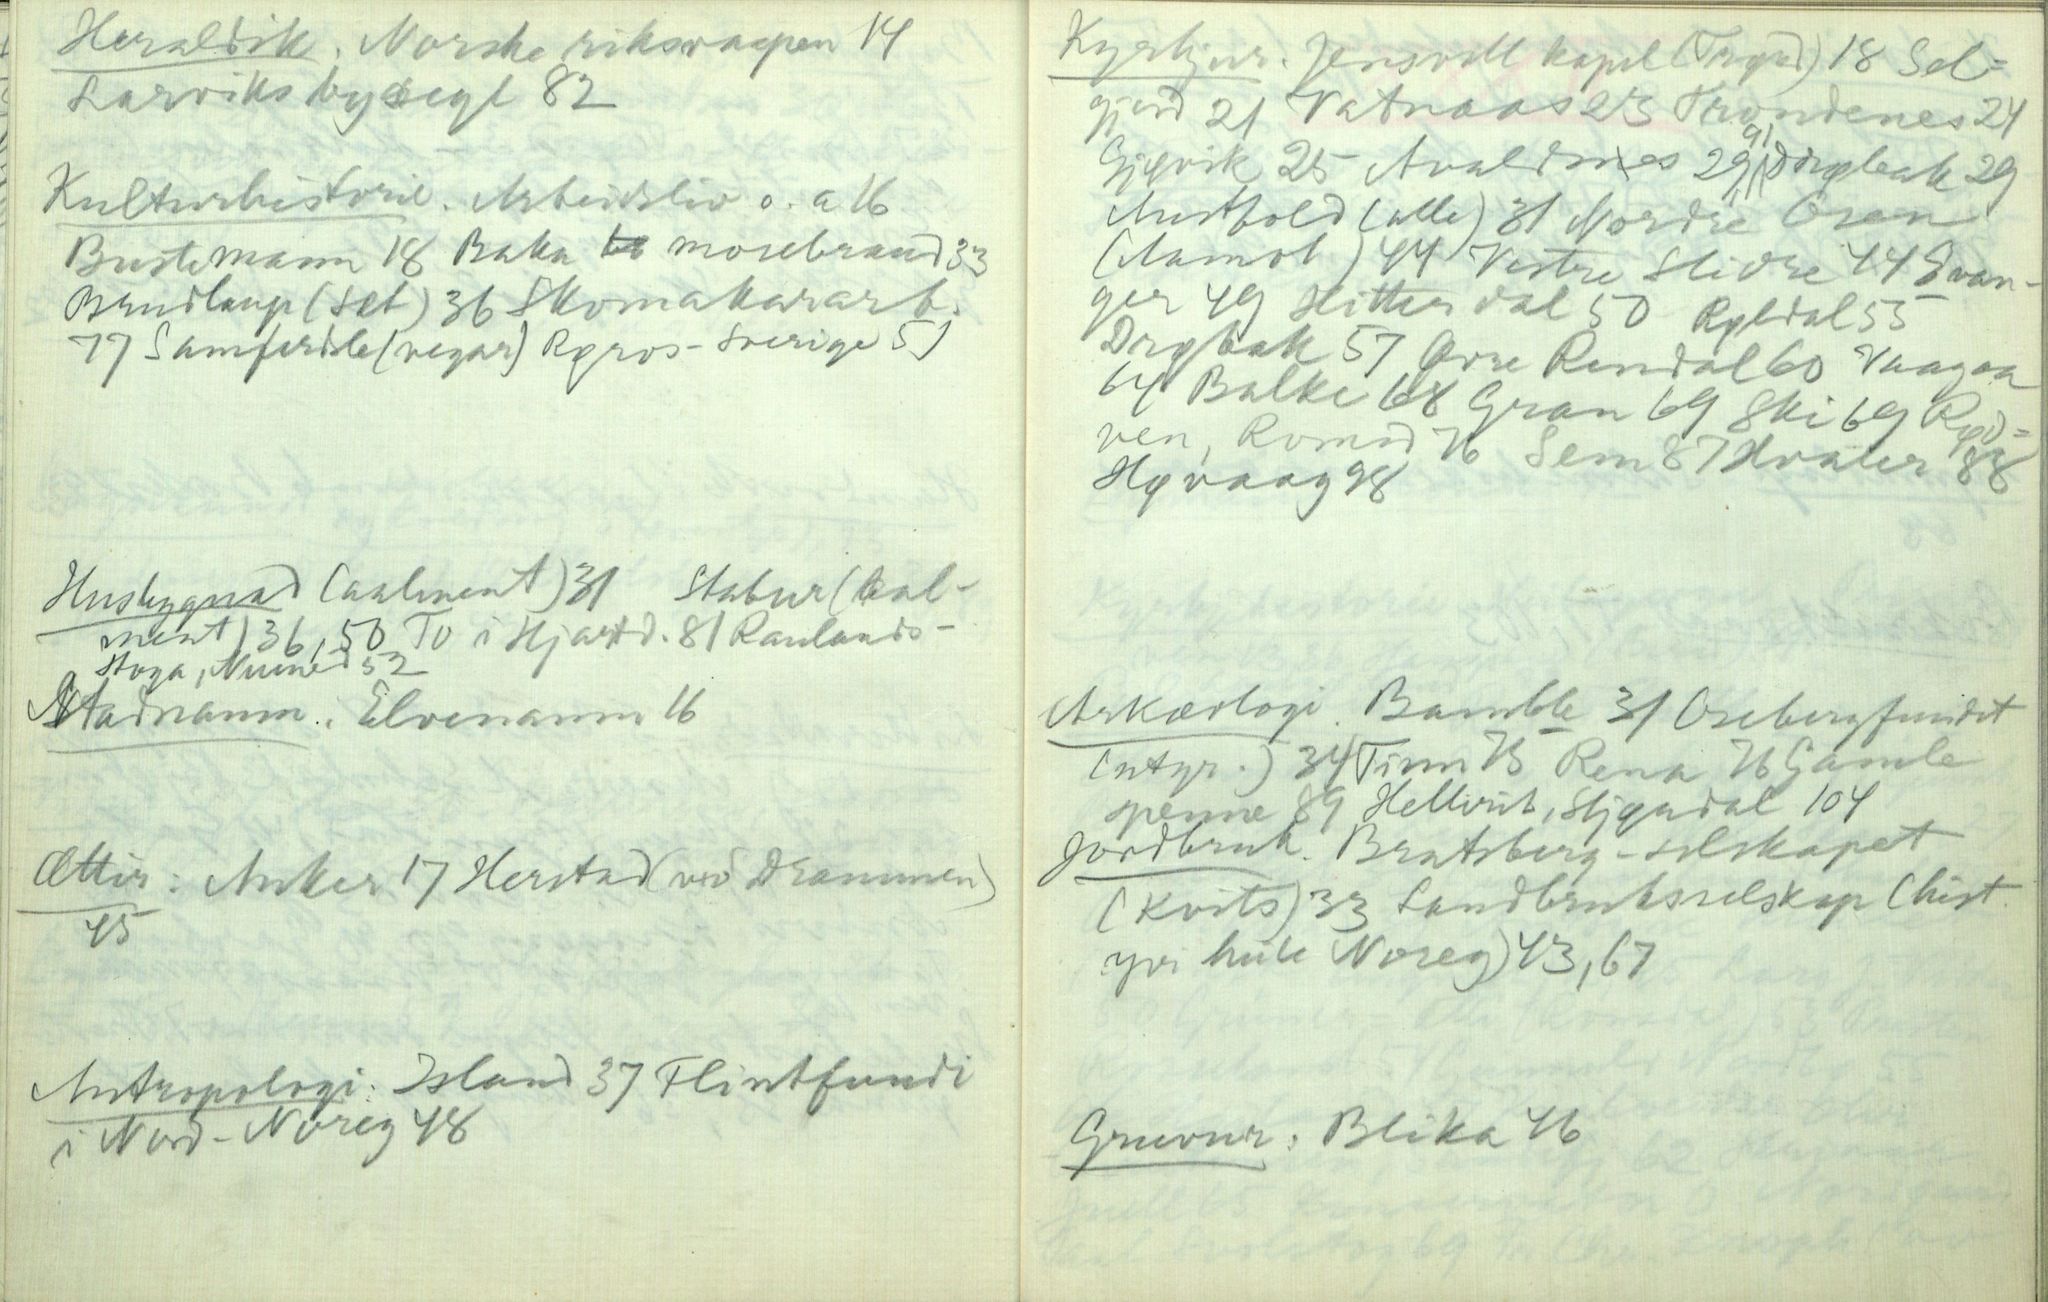 Heraldik. Norske riksvaapen 14
Larviks bysegl 82
Kulturhistorie. Arbeidsliv o. a 16
Bustemann 18 Baka mosebraud 33
Brudlaup (Set) 36 Skomakararb.
77 Samferdsle (vegar) Røros-Sverige 51
Husbygnad (aalment) 31 Stabur (aal-
ment) 36, 50 To i Hjartd. 81 Raulands-
stoga, Numed 52
Stadnamn. Elvenamn 16
Ættir: Anker 17 Herstad (ved Drammen)
45
Antropologi: Island 37 Flintfundi
i Nord-Noreg 48
Kyrkjur. Jensvoll kapel (Trysd) 18 Sel=
gjord 21 Vatnaas 23 Trondenes 24
Gjøvik 25 Avaldsnes 29, 91 Drøbak 29
Austfold (alle) 31 Nordre Osen
(Aamot) 44 Vestre Slidre 44 Evan-
ger 49 Hitterdal 50 Røldal 55
Drøbak 57 Øvre Rendal 60 Vaagaa
64 Balke 68 Gran 69 Ski 69 Rød=
ven, Romsd 76 Sem 87 Hvaler 88
Høvaag 98
Arkæologi. Bamble 31 Osebergfundet
(utgr.) 34 Tinn 75 Rena 76 Gamle
penne 89 Hellvik, Stjørdal 104
Jordbruk. Bratsberg-selskapet
(Kvits) 33 Landbruksselskap (hist.
yvi heile Noreg) 43, 67
Gruvur: Blika 46